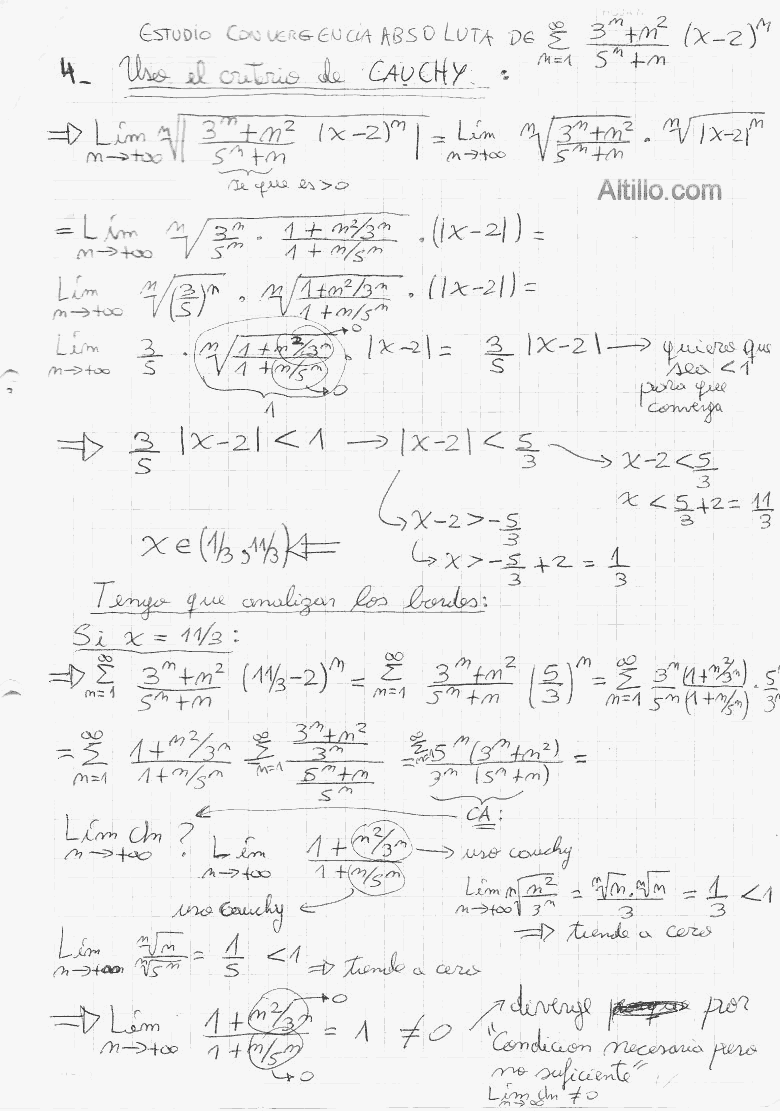 ESTUDIO CONVERGENCIA ABSOLUTA DE ∑_{n=1}^{∞} (3^n+n^2)/(5^n+n) (x-2)^n
4_ Uso el criterio de CAUCHY :
⇒ Lím_{n→+∞} ⁿ√|(3^n+n^2)/(5^n+n) (x-2)^n| = Lím_{n→+∞} ⁿ√((3^n+n^2)/(5^n+n)) · ⁿ√|x-2|^n
se que es >0
Altillo.com
= Lím_{n→+∞} ⁿ√(3^n/5^n · (1+n^2/3^n)/(1+n/5^n)) · (|x-2|) =
Lím_{n→+∞} ⁿ√((3/5)^n) · ⁿ√((1+n^2/3^n)/(1+n/5^n)) · (|x-2|) =
Lím_{n→+∞} 3/5 · ⁿ√((1+n^2/3^n)/(1+n/5^n)) · |x-2| = 3/5 |x-2| → quiero que sea <1 para que converga
→0
→0
1
⇒ 3/5 |x-2| < 1 → |x-2| < 5/3 → x-2 < 5/3
x < 5/3+2 = 11/3
↳ x-2 > -5/3
↳ x > -5/3 + 2 = 1/3
x ∈ (1/3, 11/3) ⇐
Tengo que analizar los bordes:
Si x = 11/3 :
⇒ ∑_{n=1}^{∞} (3^n+n^2)/(5^n+n) (11/3-2)^n = ∑_{n=1}^{∞} (3^n+n^2)/(5^n+n) (5/3)^n = ∑_{n=1}^{∞} 3^n(1+n^2/3^n)/5^n(1+n/5^n) · 5^n
= ∑_{n=1}^{∞} (1+n^2/3^n)/(1+n/5^n) ∑_{n=1}^{∞} ((3^n+n^2)/3^n)/((5^n+n)/5^n) = ∑_{n=1}^{∞} 5^n(3^n+n^2)/3^n(5^n+n) =
CA:
Lím_{n→+∞} an ? Lím_{n→+∞} (1+n^2/3^n)/(1+n/5^n) → uso cauchy
Lím_{n→+∞} ⁿ√(n^2/3^n) = ⁿ√n·ⁿ√n/3 = 1/3 < 1
⇒ tiende a cero
uso Cauchy ←
Lím_{n→+∞} ⁿ√n/ⁿ√5^n = 1/5 < 1 ⇒ tiende a cero
⇒ Lím_{n→+∞} (1+n^2/3^n)/(1+n/5^n) = 1 ≠ 0
→0
→0
diverge por
"Condicion necesaria pero
no suficiente"
Lím_{n→∞} an ≠0